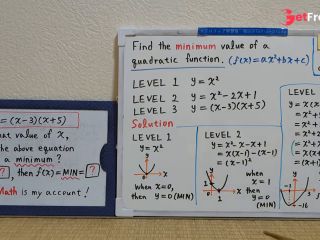 GetFree
= (x-3)(x+5)
at value of x,
the above equation
a minimum?
?, then f(x)=MIN=?
Math is my account!
Find the minimum value of a
quadratic function. (f(x)=ax²+bx+c)
LEVEL 1 y=x²
LEVEL 2 y=x²-2x+1
LEVEL 3 y=(x-3)(x+5)
Solution
LEVEL 1
y=x²
y
x
0
when
x=0,
then
y=0 (MIN)
LEVEL 2
y=x²-x-x+1
=x(x-1)-(x-1)
=(x-1)²
y
1
x
0
1
when
x=1
then
y=0 (MIN)
LEVEL
y=x(x+
=x²+
=x²+
=x²+
=(x+
=(x+
y
-1
x
-16